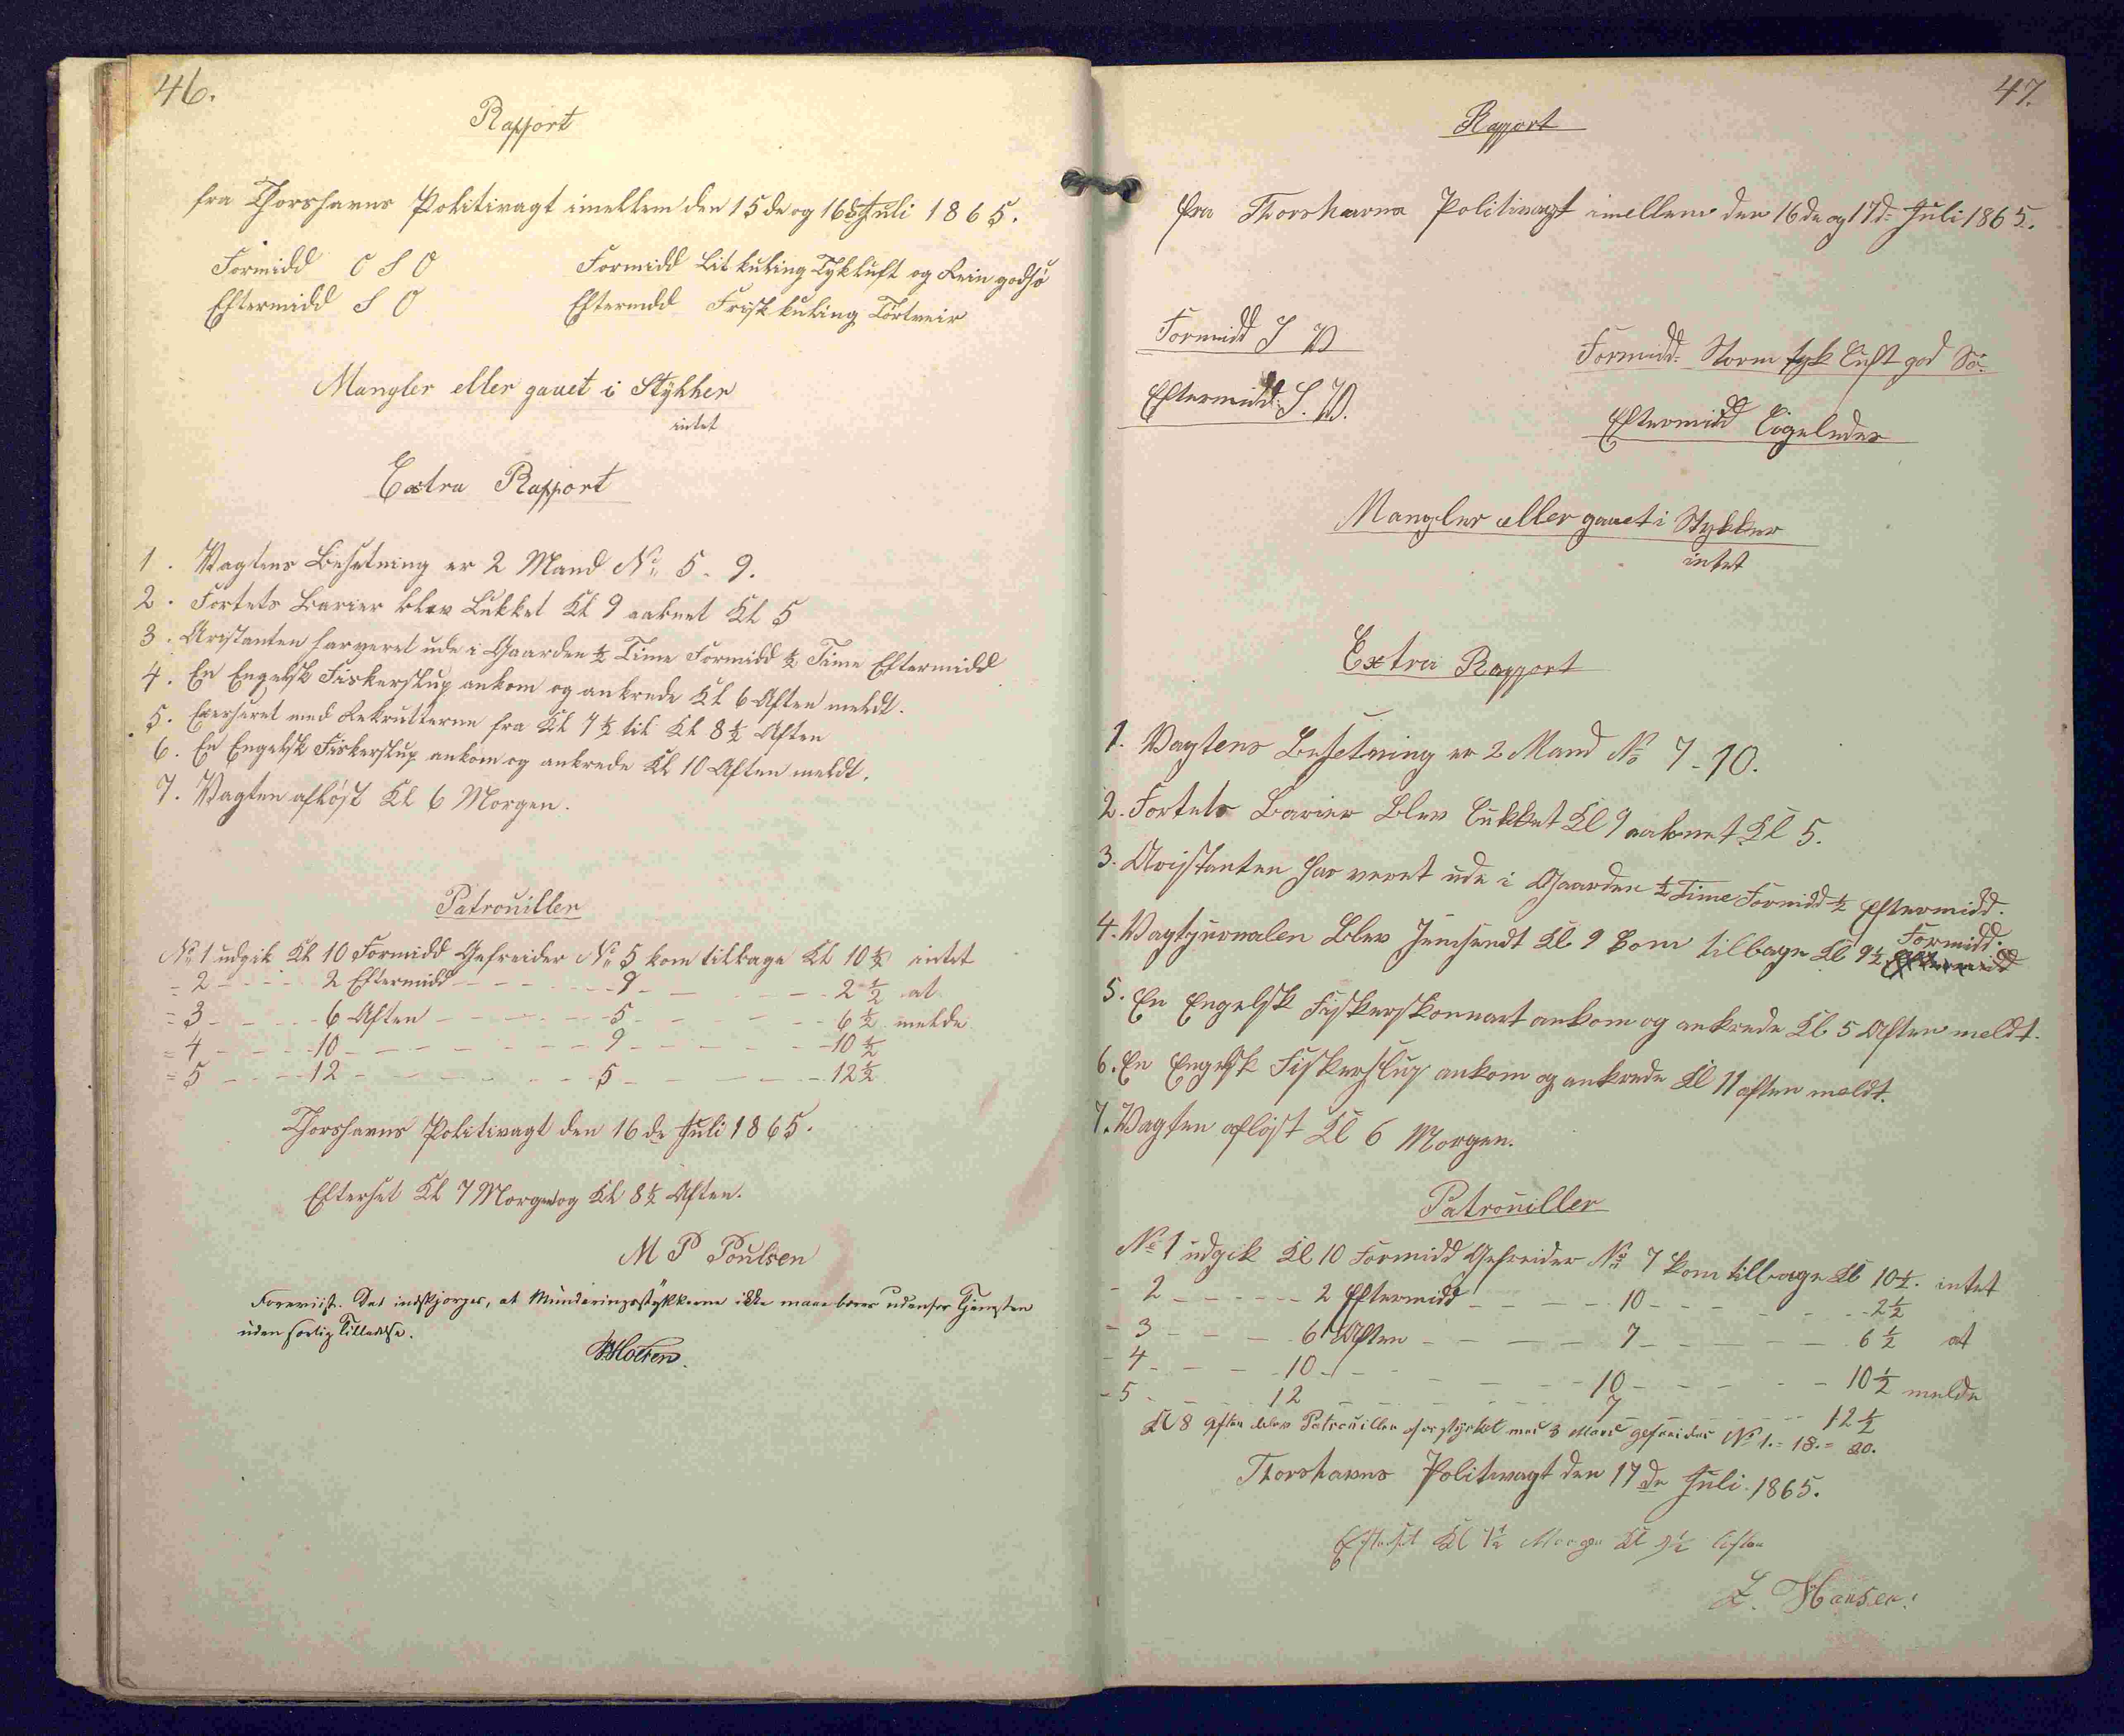 46.
Rapport
fra Thorshavns Politivagt imellem den 15de og 16de Juli 1865.
Formidd O S O
Formidd Lit kuling Tykluft og Rein god sø
Eftermidd S O
Eftermdd Frisk kuling Törtveir
Mangler eller gaaet i Stykker
intet
Extra Rapport
1. Vagtens Besetning er 2 Mand No 5 - 9.
2. Fortets Barier blev Lukket Kl 9 aaknet Kl 5
3. Aristanten har veret ude i Gaarden ½ Time Formidd ½ Time Eftermidd
4. En Engelsk Fiskerslup ankom og ankrede Kl 6 Aften meldt.
5. Exerseret med Rekrutterne fra Kl 7½ til Kl 8½ Aften
6. En Engelsk Fiskerslup ankom og ankrede Kl 10 Aften meldt.
7. Vagten afløst Kl 6 Morgen.
Patrouiller
No 1 udgik Kl 10 Formidd Gefreider No 5 kom tilbage Kl 10½ intet
= 2 - - - - - 2 Eftermidd - - - - - - 9 - - - - - - 2½ at
= 3 - - - - - 6 Aften - - - - - - 5 - - - - - - 6½ melde
= 4 - - - - - 10 - - - - - - 9 - - - - - - 10½
= 5 - - - - - 12 - - - - - - 5 - - - - - - 12½
Thorshavns Politivagt den 16de Juli 1865.
Efterset Kl 7 Morgen og Kl 8½ Aften.
M P Poulsen
Foreviist. Det indskjerpes, at Munderingsstykkerne ikke maae bæres udenfor Tjenesten
uden særlig Tilladelse.
Holten.
47.
Rapport
fra Thorshavns Politivagt imellem den 16de og 17d= Juli 1865.
Formidd S V
Formidd= Storm tyk Luft god Sö=
Eftermidd: S. V.
Eftermidd Ligeledes
Mangler eller gaaet i Stykker
intet
Extra Rapport
1. Vagtens Besetning er 2 Mand No 7 - 10.
2. Fortets Barier Blev Lukket Kl 9 aaknet Kl 5.
3. Aristanten har veret ude i Gaarden ½ Time Formidd ½ Eftermidd.
4. Vagtjuronalen Blev Jemsendt Kl 9 kom tilbage Kl 9½ Formidd.
5. En Engelsk Fiskerskonnart ankom og ankrede Kl 5 Aften meldt.
6. En Engelsk Fiskerslup ankom og ankrede Kl 11 aften meldt.
7. Vagten afløst Kl 6 Morgen.
Patrouiller
No 1 udgik Kl 10 Formidd Gefreider No 7 kom tilbage Kl 10½. intet
- 2 - - - - - 2 Eftermidd - - - - - 10 - - - - - 2½
- 3 - - - - 6 Aften - - - - 7 - - - - - 6½ at
- 4 - - - - 10 - - - - - 10 - - - - - 10½ melde
- 5 - - - - 12 - - - - - 7 - - - - - 12½
Kl 8 Aften blev Patrouillen forstyrket med 3 Mand gefreider No 1. = 18. = 20.
Thorshavns Politivagt den 17de Juli 1865.
Efterset Kl 7½ Morgen Kl 9½ Aften
Z. Hansen.